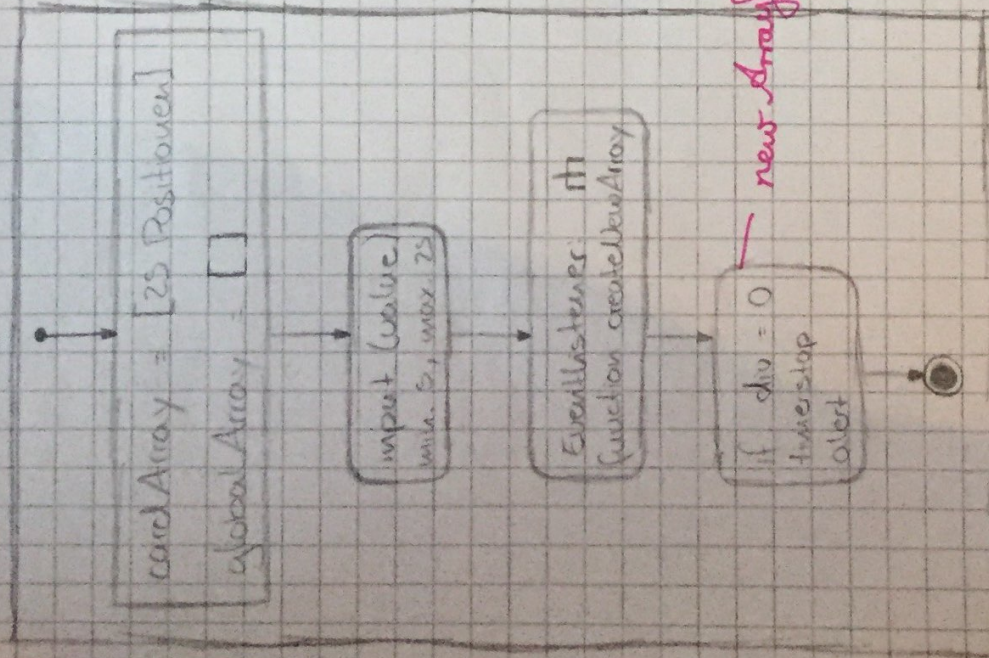 cardArray = [25 Positionen]
globalArray = []
input (value)
min. 5, max. 25
Eventlistener:
function createNewArray
if div = 0
timerstop
alert
new Array